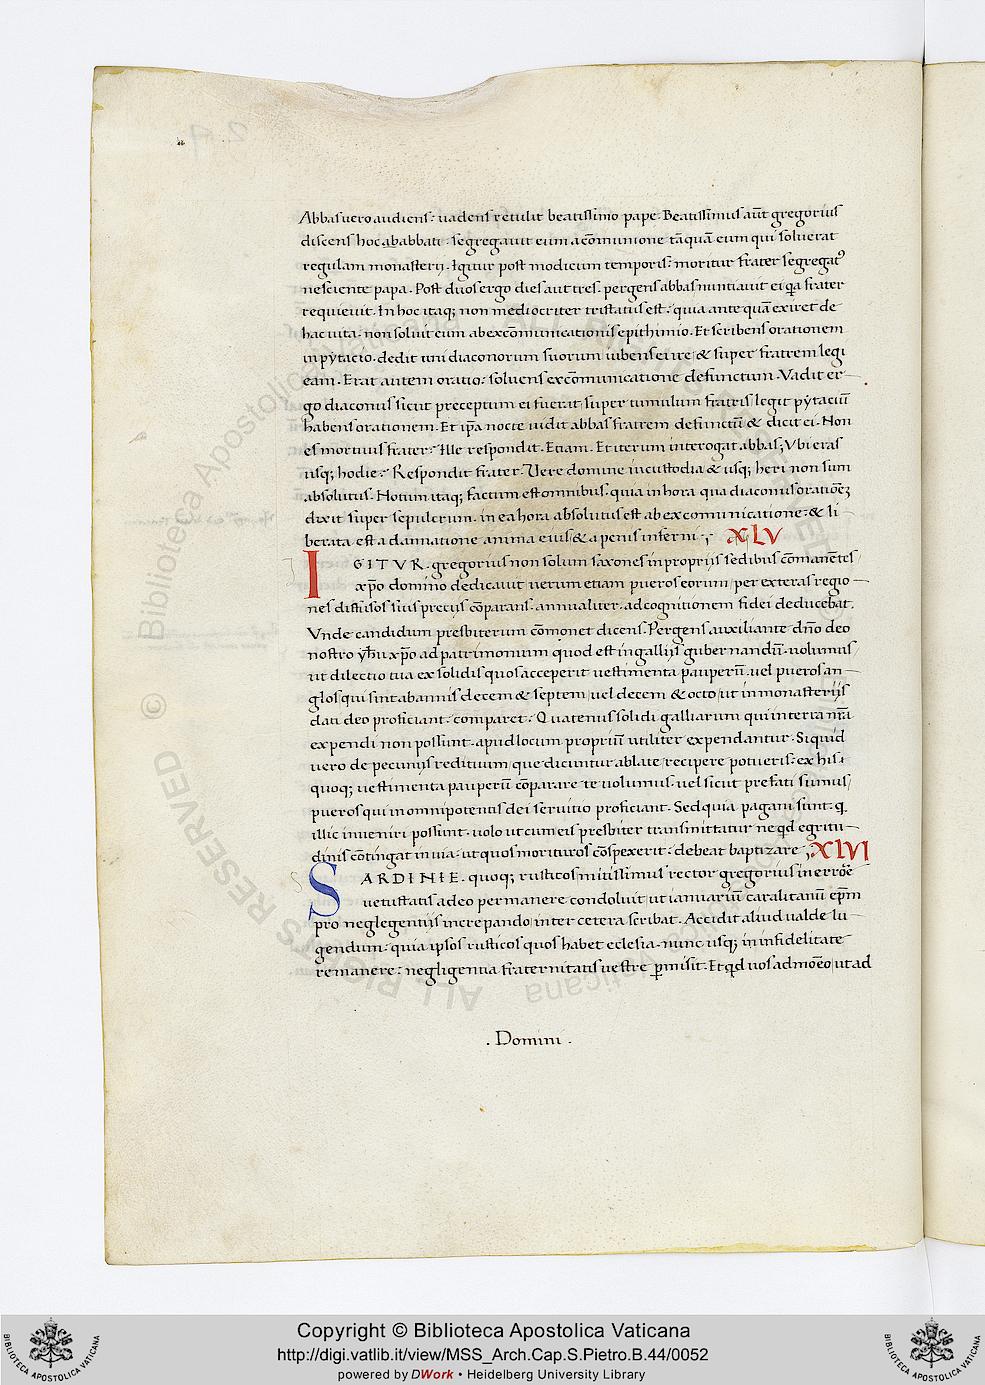 Abbas uero audiens: uadens retulit beatissimo pape. Beatissimus aūt gregorius
discens hoc ab abbati: segregauit eum a cōmunione tāquā eum qui soluerat
regulam monasterij. Igitur post modicum temporis: moritur frater segregatꝰ
nesciente papa. Post duos ergo dies aut tres. pergens abbas nuntiauit ei q̄a frater
requieuit. In hoc itaq; non mediocriter tristatus est: quia ante quā exiret de
hac uita. non soluit eum ab excōmunicationis epithimio. Et scribens orationem
in pytacio. dedit uni diaconorum suorum iubens ei ire & super fratrem legi
eam. Erat autem oratio: soluens excōmunicatione defunctum. Vadit er-
go diaconus sicut preceptum ei fuerat super tumulum fratris legit pytaciū
habens orationem. Et ip̄a nocte uidit abbas fratrem defunctū & dicit ei. Non
es mortuus frater? Ille respondit. Etiam. Et iterum interogat abbas; Vbi eras
usq; hodie? Respondit frater. Vere domine in custodia & usq; heri non sum
absolutus. Notum itaq; factum est omnibus. quia in hora qua diaconus orationē
dixit super sepulcrum. in ea hora absolutus est ab excomunicatione: & li
berata est a damnatione anima eius & a penis inferni; XLV
IGITVR. gregorius non solum saxones in proprijs sedibus cōmanētes
xp̄o domino dedicauit uerum etiam pueros eorum/ per exteras regio-
nes diffusos suis precijs cōparans. annualiter. ad cognitionem fidei deducebat.
Vnde candidum presbiterum cōmonet dicens. Pergens auxiliante dn̄o deo
nostro yh̄u xp̄o ad patrimonium quod est in gallijs gubernandū. uolumus
ut dilectio tua ex solidis quos acceperit uestimenta pauperū. uel pueros an-
glos qui sint ab annis decem & septem/ uel decem & octo/ ut in monasterijs
dati deo proficiant: comparet. Quatenus solidi galliarum qui in terra nr̄a
expendi non possunt. apud locum propriū utiliter expendantur. Siquid
uero de pecunijs redituum/ que dicuntur ablate/ recipere potueris: ex his
quoq; uestimenta pauperū cōparare te uolumus. uel sicut prefati sumus/
pueros qui in omnipotentis dei seruitio proficiant. Sed quia pagani sunt. q.
illic inueniri possunt. uolo ut cum eis presbiter transmittatur ne qd egritu-
dinis cōtingat in uia: ut quos morituros cōspexerit: debeat baptizare; XLVI
SARDINIE. quoq; rusticos mitissimus rector gregorius in errōe
uetustatis adeo permanere condoluit ut ianuariū caralitanū ep̄m
pro neglegentijs increpando/ inter cetera scribat. Accidit aliud ualde lu-
gendum: quia ipsos rusticos quos habet eclesia. nunc usq; in infidelitate
remanere: negligentia fraternitatis uestre p̄misit. Et qd uos admoneo/ ut ad
. Domini .
Copyright © Biblioteca Apostolica Vaticana
http://digi.vatlib.it/view/MSS_Arch.Cap.S.Pietro.B.44/0052
powered by DWork • Heidelberg University Library